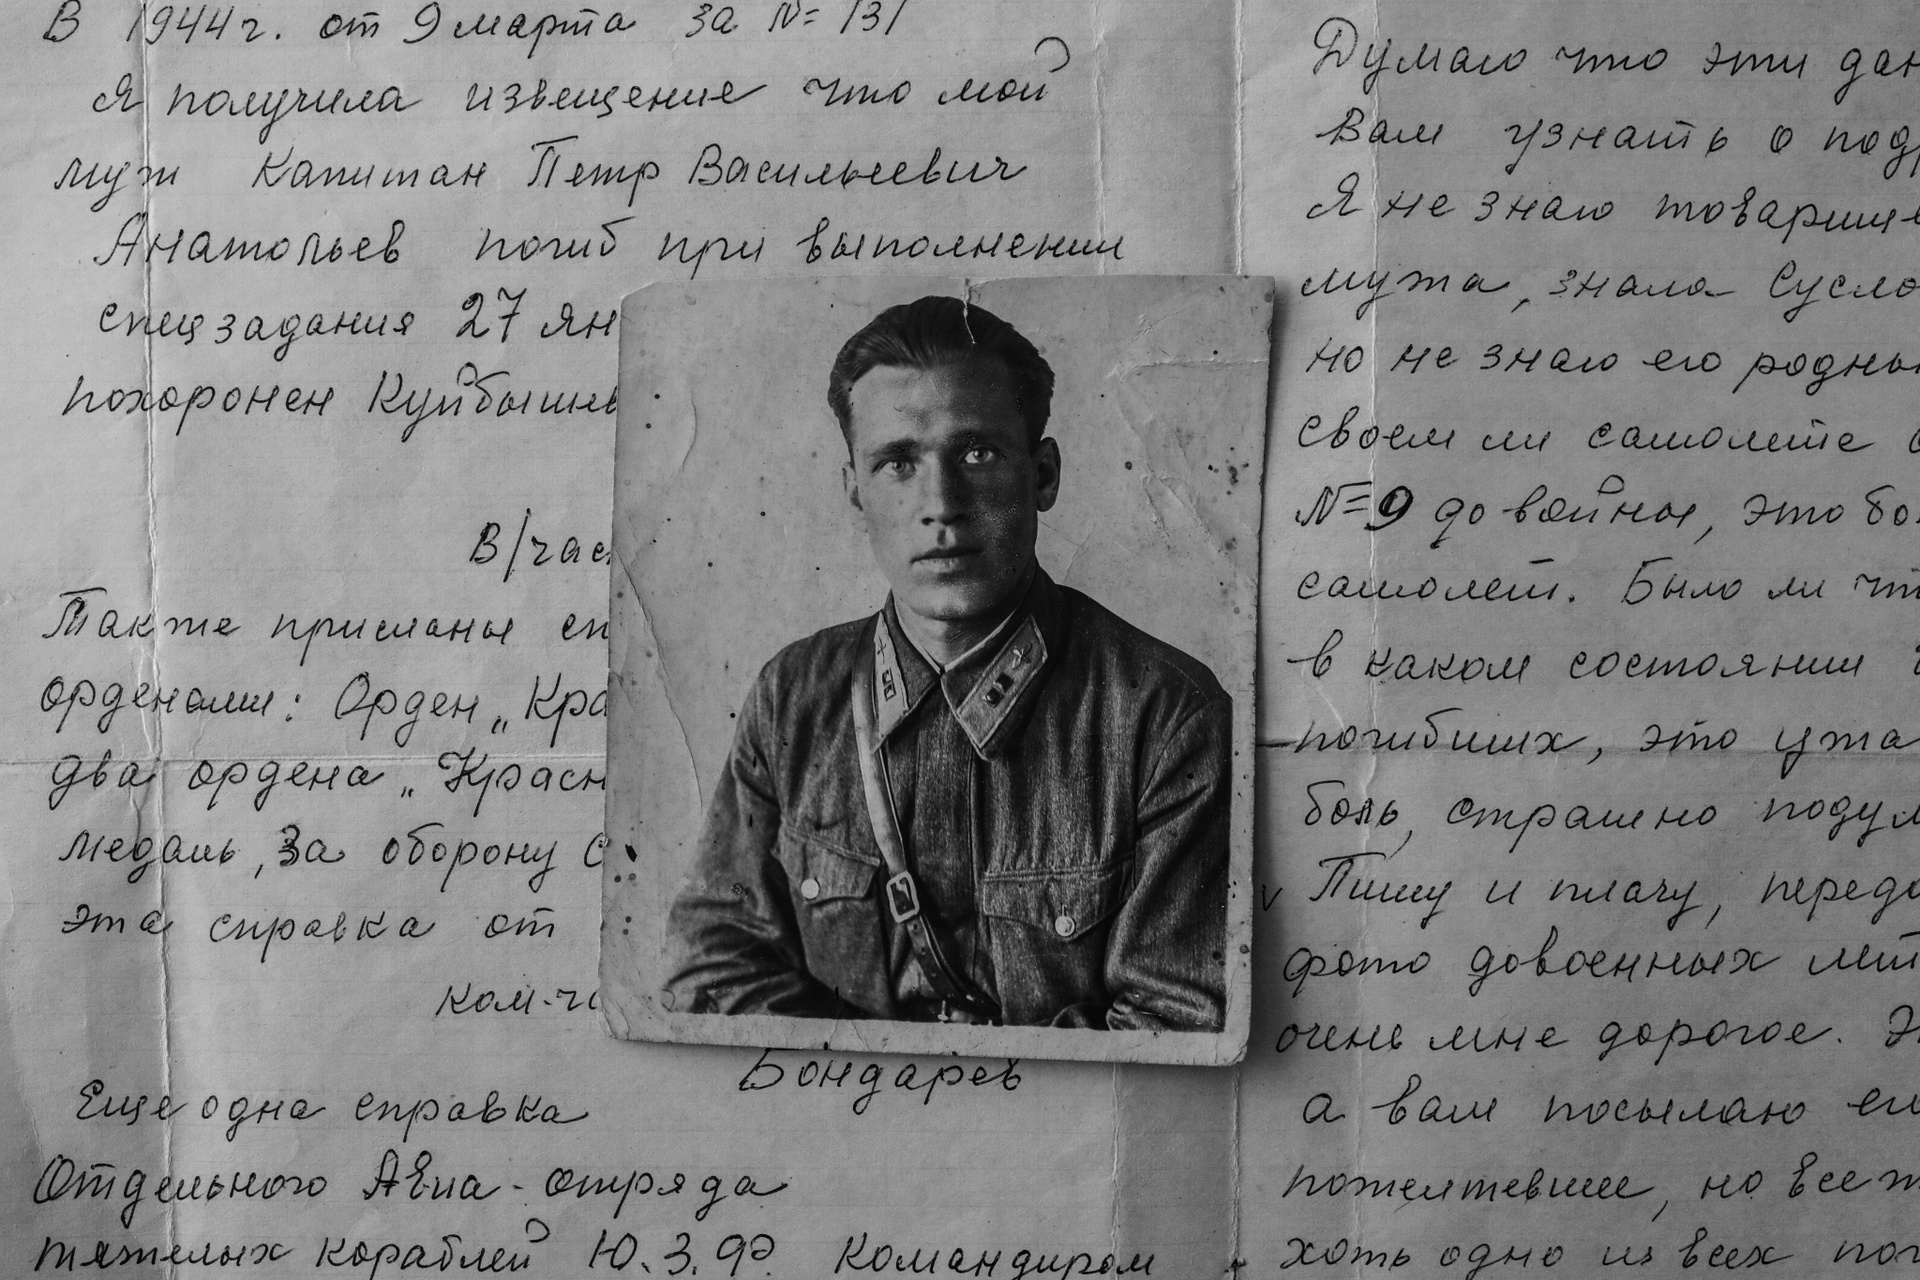 В 1944 г. от 9 марта за №131
Я получила извещение что мой
муж Капитан Петр Васильевич
Анатольев погиб при выполнении
спецзадания 27 ян
похоронен Куйбышев
В/час
Также присланы сп
орденами: Орден „Кра
два ордена „Красн
медаль, За оборону С
эта справка от
ком-ч
Бондарев
Еще одна справка
Отдельного Авиа-отряда
тяжелых кораблей Ю.З.Ф. Командиром
Думаю что эти дан
Вам узнать о под
Я не знаю товарище
мужа, знала Сусло
но не знаю его родны
своем ли самолете
№9 до войны, это бол
самолет. Было ли чт
в каком состоянии
погибших, это ужа
боль, страшно подум
Пишу и плачу, пере
фото довоенных лет
очень мне дорогое. Э
а вам посылаю ег
пожелтевшее, но все ж
хоть одно из всех пог